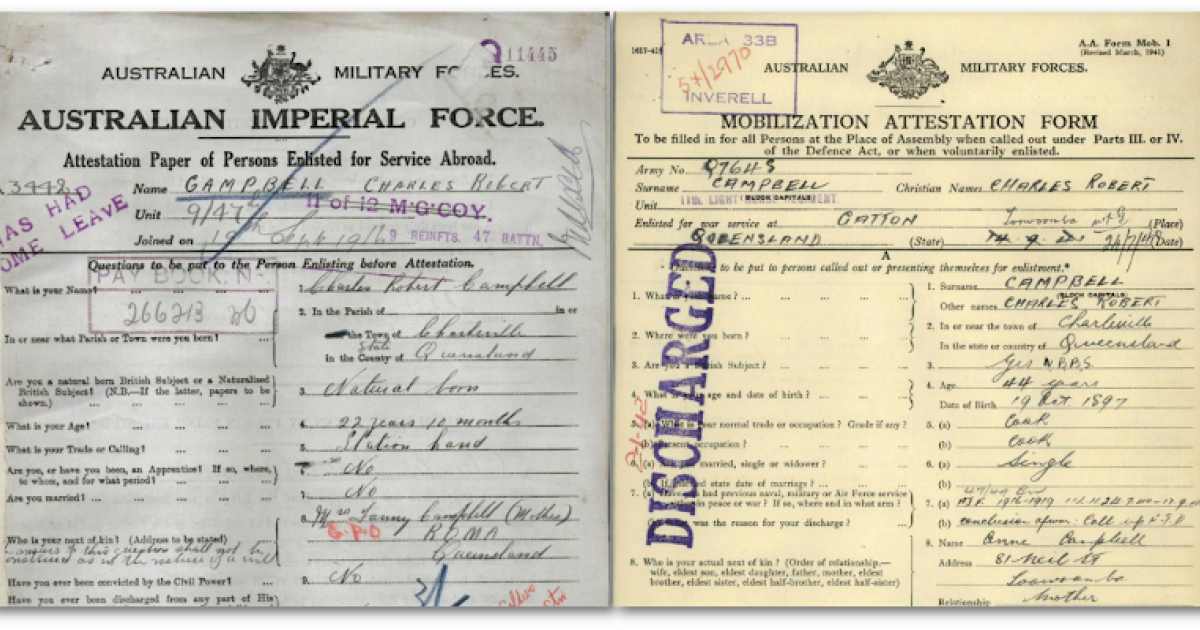 11445
AUSTRALIAN MILITARY FORCES.
AUSTRALIAN IMPERIAL FORCE.
Attestation Paper of Persons Enlisted for Service Abroad.
3448
HAS HAD
HOME LEAVE
Name CAMPBELL CHARLES ROBERT
Unit 9/47th 11 of 12 McCOY.
Joined on Sept 1916 9 REINFTS. 47 BATTN.
Questions to be put to the Person Enlisting before Attestation.
PAY BOOK No
266213
What is your Name? ... ... 1. Charles Robert Campbell
2. In the Parish of in or
In or near what Parish or Town were you born? ... the Town of Charleville
State
in the County of Queensland
Are you a natural born British Subject or a Naturalized
British Subject? (N.B.—If the latter, papers to be
shown.) ... ... ... 3. Natural born
What is your Age? ... ... ... 4. 22 years 10 months
What is your Trade or Calling? ... ... 5. Station hand
Are you, or have you been, an Apprentice? If so, where,
to whom, and for what period? ... ... 6. No
Are you married? ... ... ... ... 7. No
8. Mrs Fanny Campbell (Mother)
G.P.O ROMA
Who is your next of kin? (Address to be stated)
Queensland
answer to this question shall not be
construed as in the nature of a will
Have you ever been convicted by the Civil Power? ... 9. No
Have you ever been discharged from any part of His
1617-41
AREA 33B
54/2970
INVERELL
A.A. Form Mob. 1
(Revised March, 1941)
AUSTRALIAN MILITARY FORCES.
MOBILIZATION ATTESTATION FORM
To be filled in for all Persons at the Place of Assembly when called out under Parts III. or IV.
of the Defence Act, or when voluntarily enlisted.
Army No. Q7648
Surname CAMPBELL Christian Names CHARLES ROBERT
(BLOCK CAPITALS)
Unit 11th LIGHT HORSE REGIMENT
Enlisted for war service at GATTON (Place)
QUEENSLAND (State) (Date)
A
Questions to be put to persons called out or presenting themselves for enlistment.*
DISCHARGED
1. What is your name? ... ... ... ... 1. Surname CAMPBELL
(BLOCK CAPITALS)
Other names CHARLES ROBERT
2. Where were you born? ... ... ... 2. In or near the town of Charleville
In the state or country of Queensland
3. Are you a British Subject? ... ... ... 3. Yes N.B.B.S.
4. What is your age and date of birth? ... ... 4. Age 44 years
Date of Birth 19 Oct. 1897
5. (a) What is your normal trade or occupation? Grade if any? 5. (a) Cook
(b) Present occupation? ... ... ... (b) Cook
6. (a) Are you married, single or widower? ... 6. (a) Single
(b) If married state date of marriage? ... ... (b)
7. (a) Have you had previous naval, military or Air Force service
in peace or war? If so, where and in what arm? 7. (a) A.I.F. 1916-1919
(b) What was the reason for your discharge? ... (b) Conclusion of war: Call up F.T.D
8. Who is your actual next of kin? (Order of relationship.—
wife, eldest son, eldest daughter, father, mother, eldest
brother, eldest sister, eldest half-brother, eldest half-sister)
8. Name Anne Campbell
Address 81 Neil St
Toowoomba
Relationship Mother